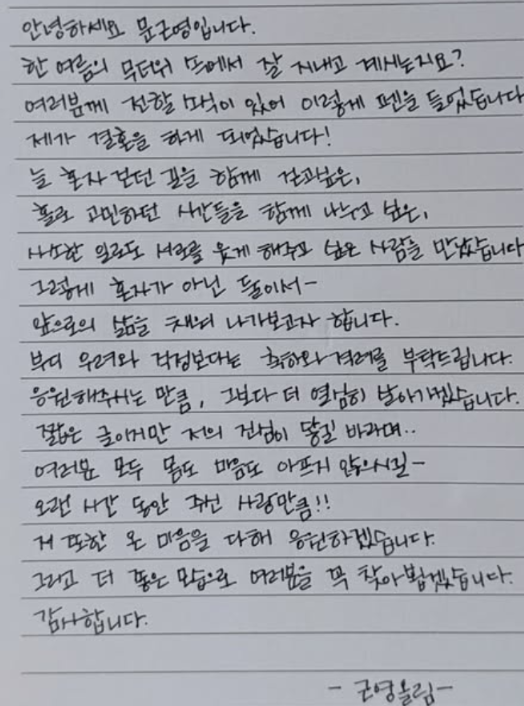 안녕하세요 문근영입니다.
한 여름의 무더위 속에서 잘 지내고 계시는지요?
여러분께 전할 소식이 있어 이렇게 펜을 들었습니다
제가 결혼을 하게 되었습니다!
늘 혼자 걷던 길을 함께 걷고싶은,
홀로 고민하던 시간들을 함께 나누고 싶은,
사소한 일로도 서로를 웃게 해주고 싶은 사람을 만났습니다
그렇게 혼자가 아닌 둘이서-
앞으로의 삶을 채워 나가보고자 합니다.
부디 우려와 걱정보다는 축하와 격려를 부탁드립니다.
응원해주시는 만큼, 그보다 더 열심히 살아가겠습니다.
짧은 글이지만 저의 진심이 닿길 바라며..
여러분 모두 몸도 마음도 아프지 않으시길-
오랜 시간 동안 주신 사랑만큼!!
저 또한 온 마음을 다해 응원하겠습니다.
그리고 더 좋은 모습으로 여러분을 꼭 찾아뵙겠습니다.
감사합니다.
- 근영올림-